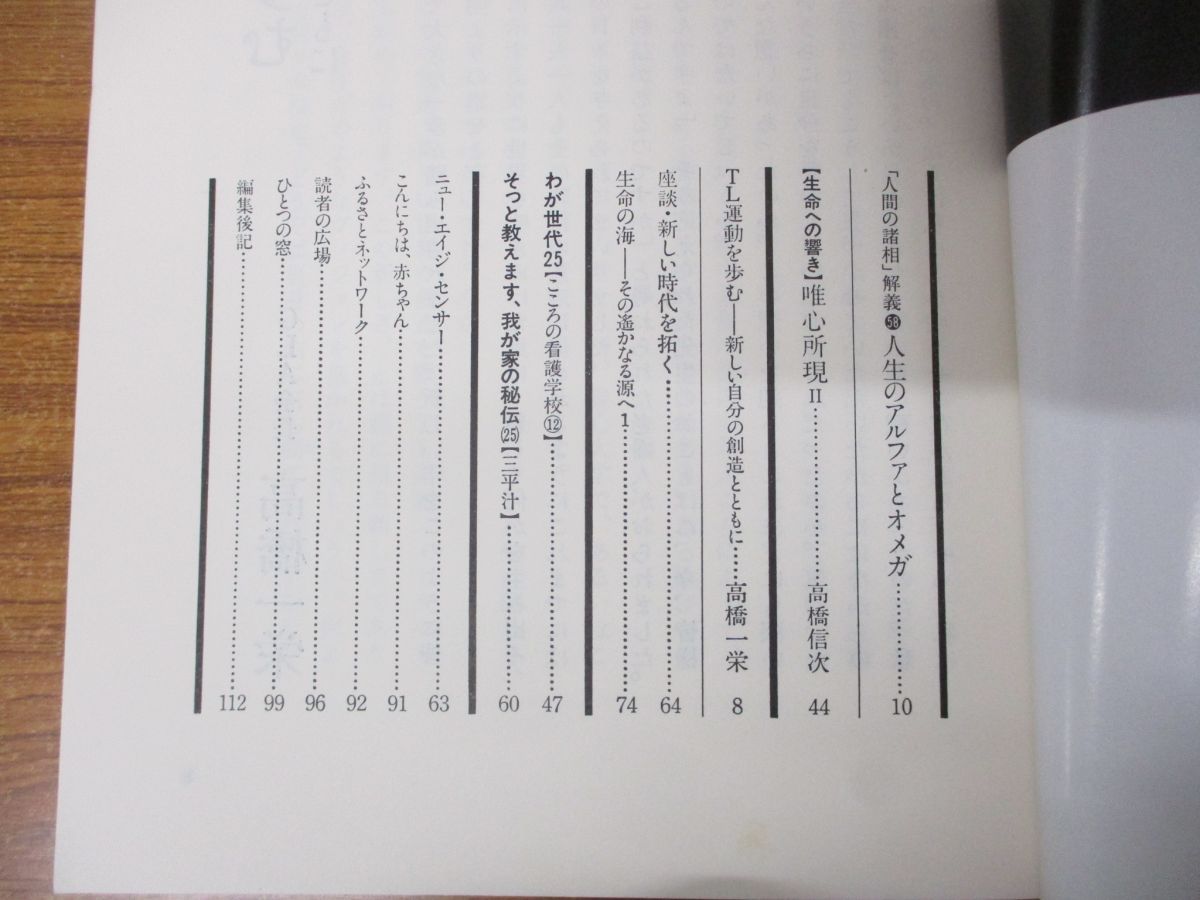 「人間の諸相」解義㊽人生のアルファとオメガ…………10
【生命への響き】唯心所現Ⅱ…………高橋信次 44
TL運動を歩む──新しい自分の創造とともに……高橋一栄 8
座談・新しい時代を拓く…………64
生命の海──その遙かなる源へ1…………74
わが世代25【こころの看護学校⑫】…………47
そっと教えます、我が家の秘伝(25)【三平汁】…………60
ニュー・エイジ・センサー…………63
こんにちは、赤ちゃん…………91
ふるさとネットワーク…………92
読者の広場…………96
ひとつの窓…………99
編集後記…………112